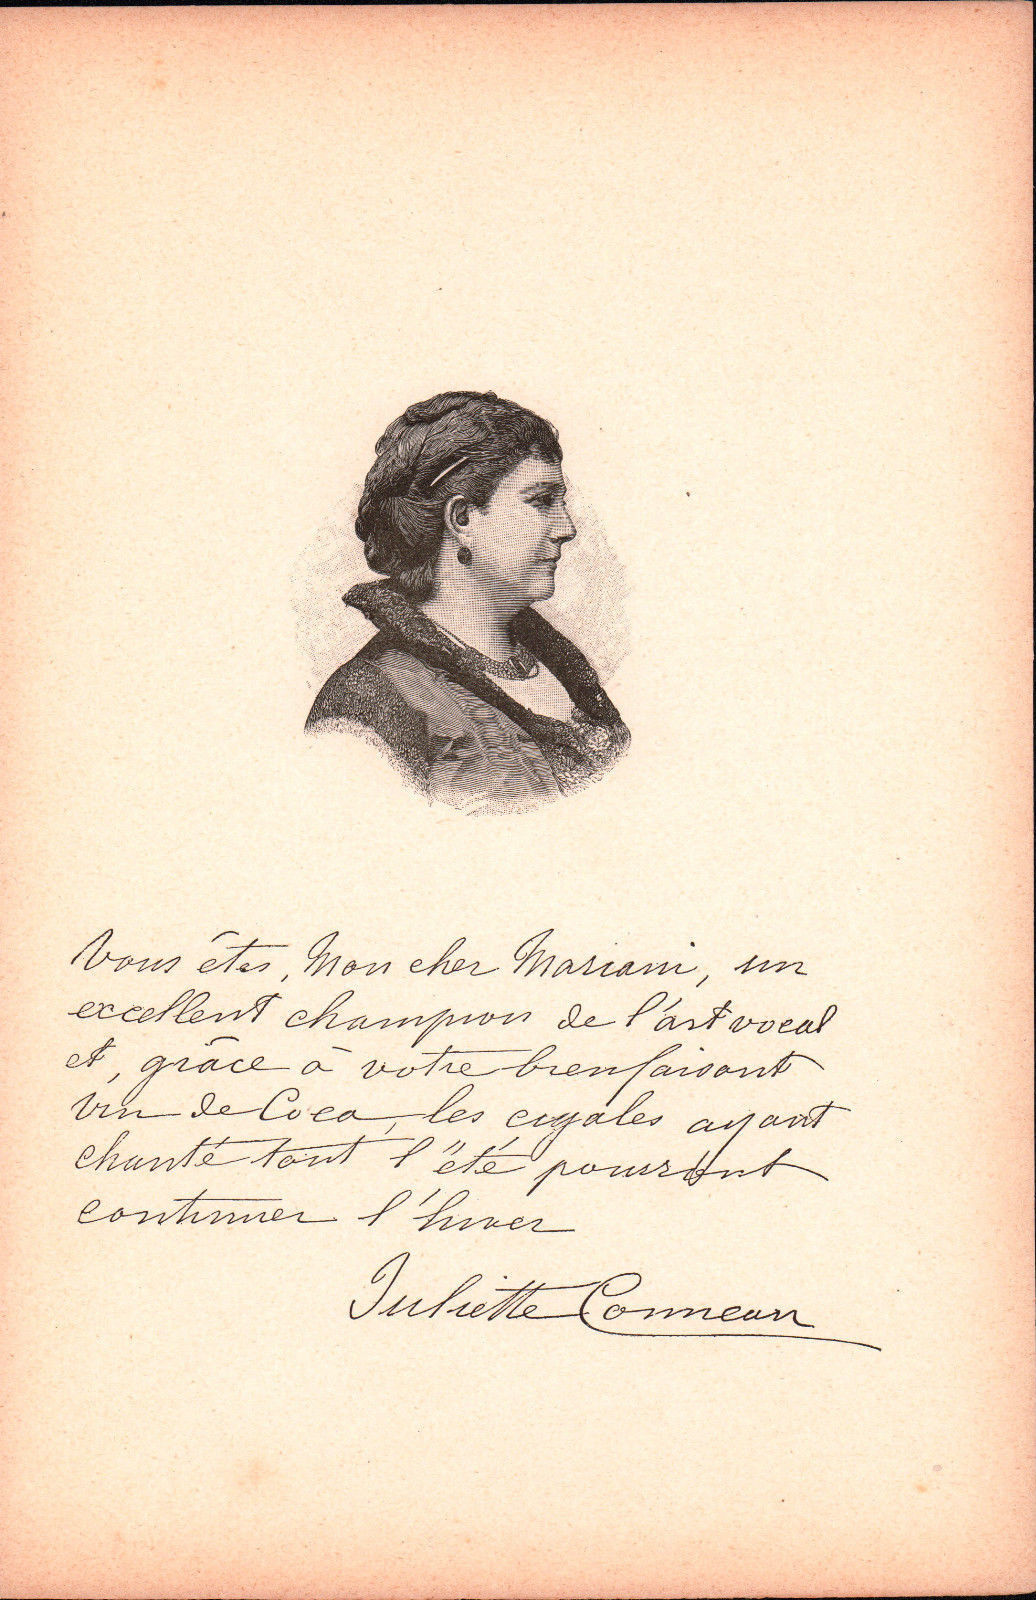 Vous êtes, Mon cher Mariani, un
excellent champion de l'art vocal
et, grâce à votre bienfaisant
vin de Coca, les cigales ayant
chanté tout l'été pourront
continuer l'hiver
Juliette Conneau